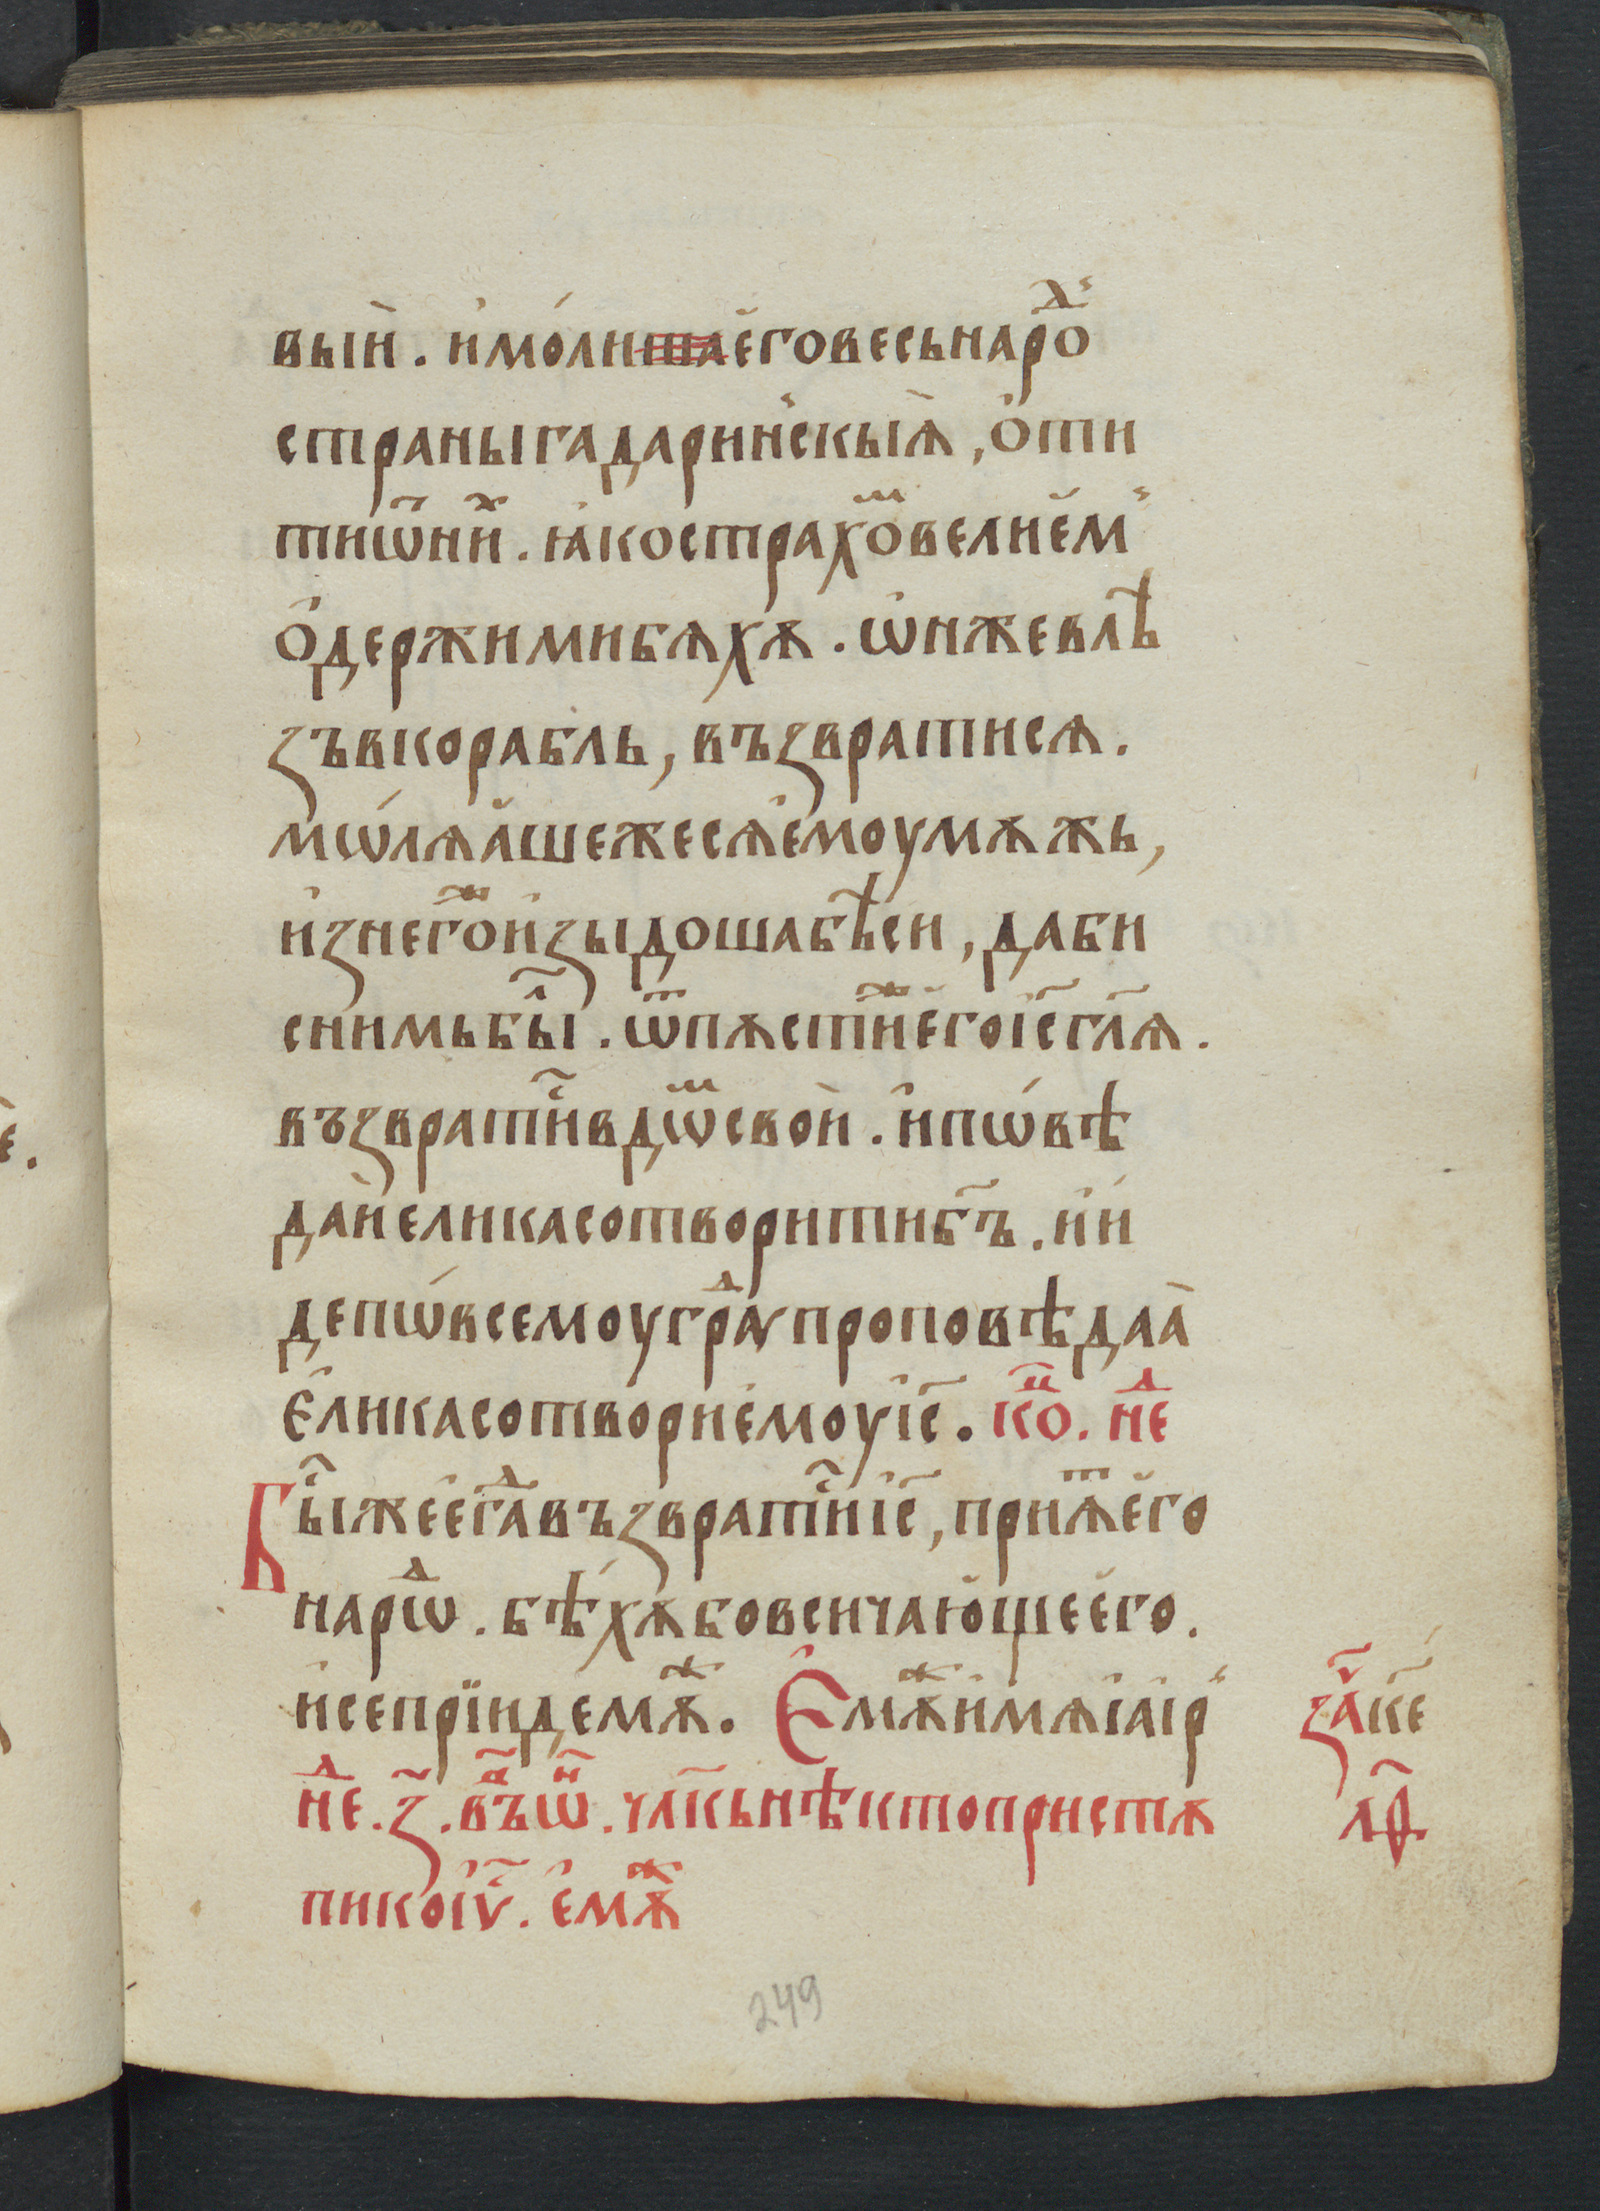 вый . и҆мо́лиша е҆го весь наро̑ⷣ
страны гадарин҆скыѧ҆ , ѻ҆ти
ти ѿ ни́ⷯ . ꙗ҆ко страхоⷨ҇ велиемⸯ
ѻ҆держими бѧхѫ . ѡ҆н же влѣ
зъ в корабль , възвратисѧ .
мѡ́лѧа҆ше же сѧ е҆моу мѫжь ,
и҆з негоⷤ҇ и҆зыдоша бѣси , да би
с нимь быⷧ҇ . ѿпѫстиⷤ҇ е҆го і҆с҃ гл҃ѧ .
възвратиⷭ҇ в дѡⷨ҇ свой . и҆ пѡ́вѣ
дай елика сотвори ти бг҃ъ . и҆ и́
де пѡ́ всемоу граⷣ҇ѹ проповѣдаа҆
є҆лика сотвори е҆моу і҆с҃ . коⷰ҇ . неⷣ
Быⷭ҇ же е҆гдаⷣ҇ възвратиⷭ҇ і҆с҃ , приѧⷮ҇ е҆го
нарѡⷣ҇ . бѣхѫ бо вси чаю҆ще е҆го .
и҆ се прїиде мѫⷤ҇ . Є҆мѫⷤ҇ и҆мѧ і҆аі҆рⸯ
неⷣ . з҃ . въⷪ҇ ѡⷩ҇ . чл҃кь нѣкто пристѫ
пи ко і҆ѵ҃ . е҆мѫⷤ҇
заⷱ҇ к҃е
лꙋⷦ҇
249